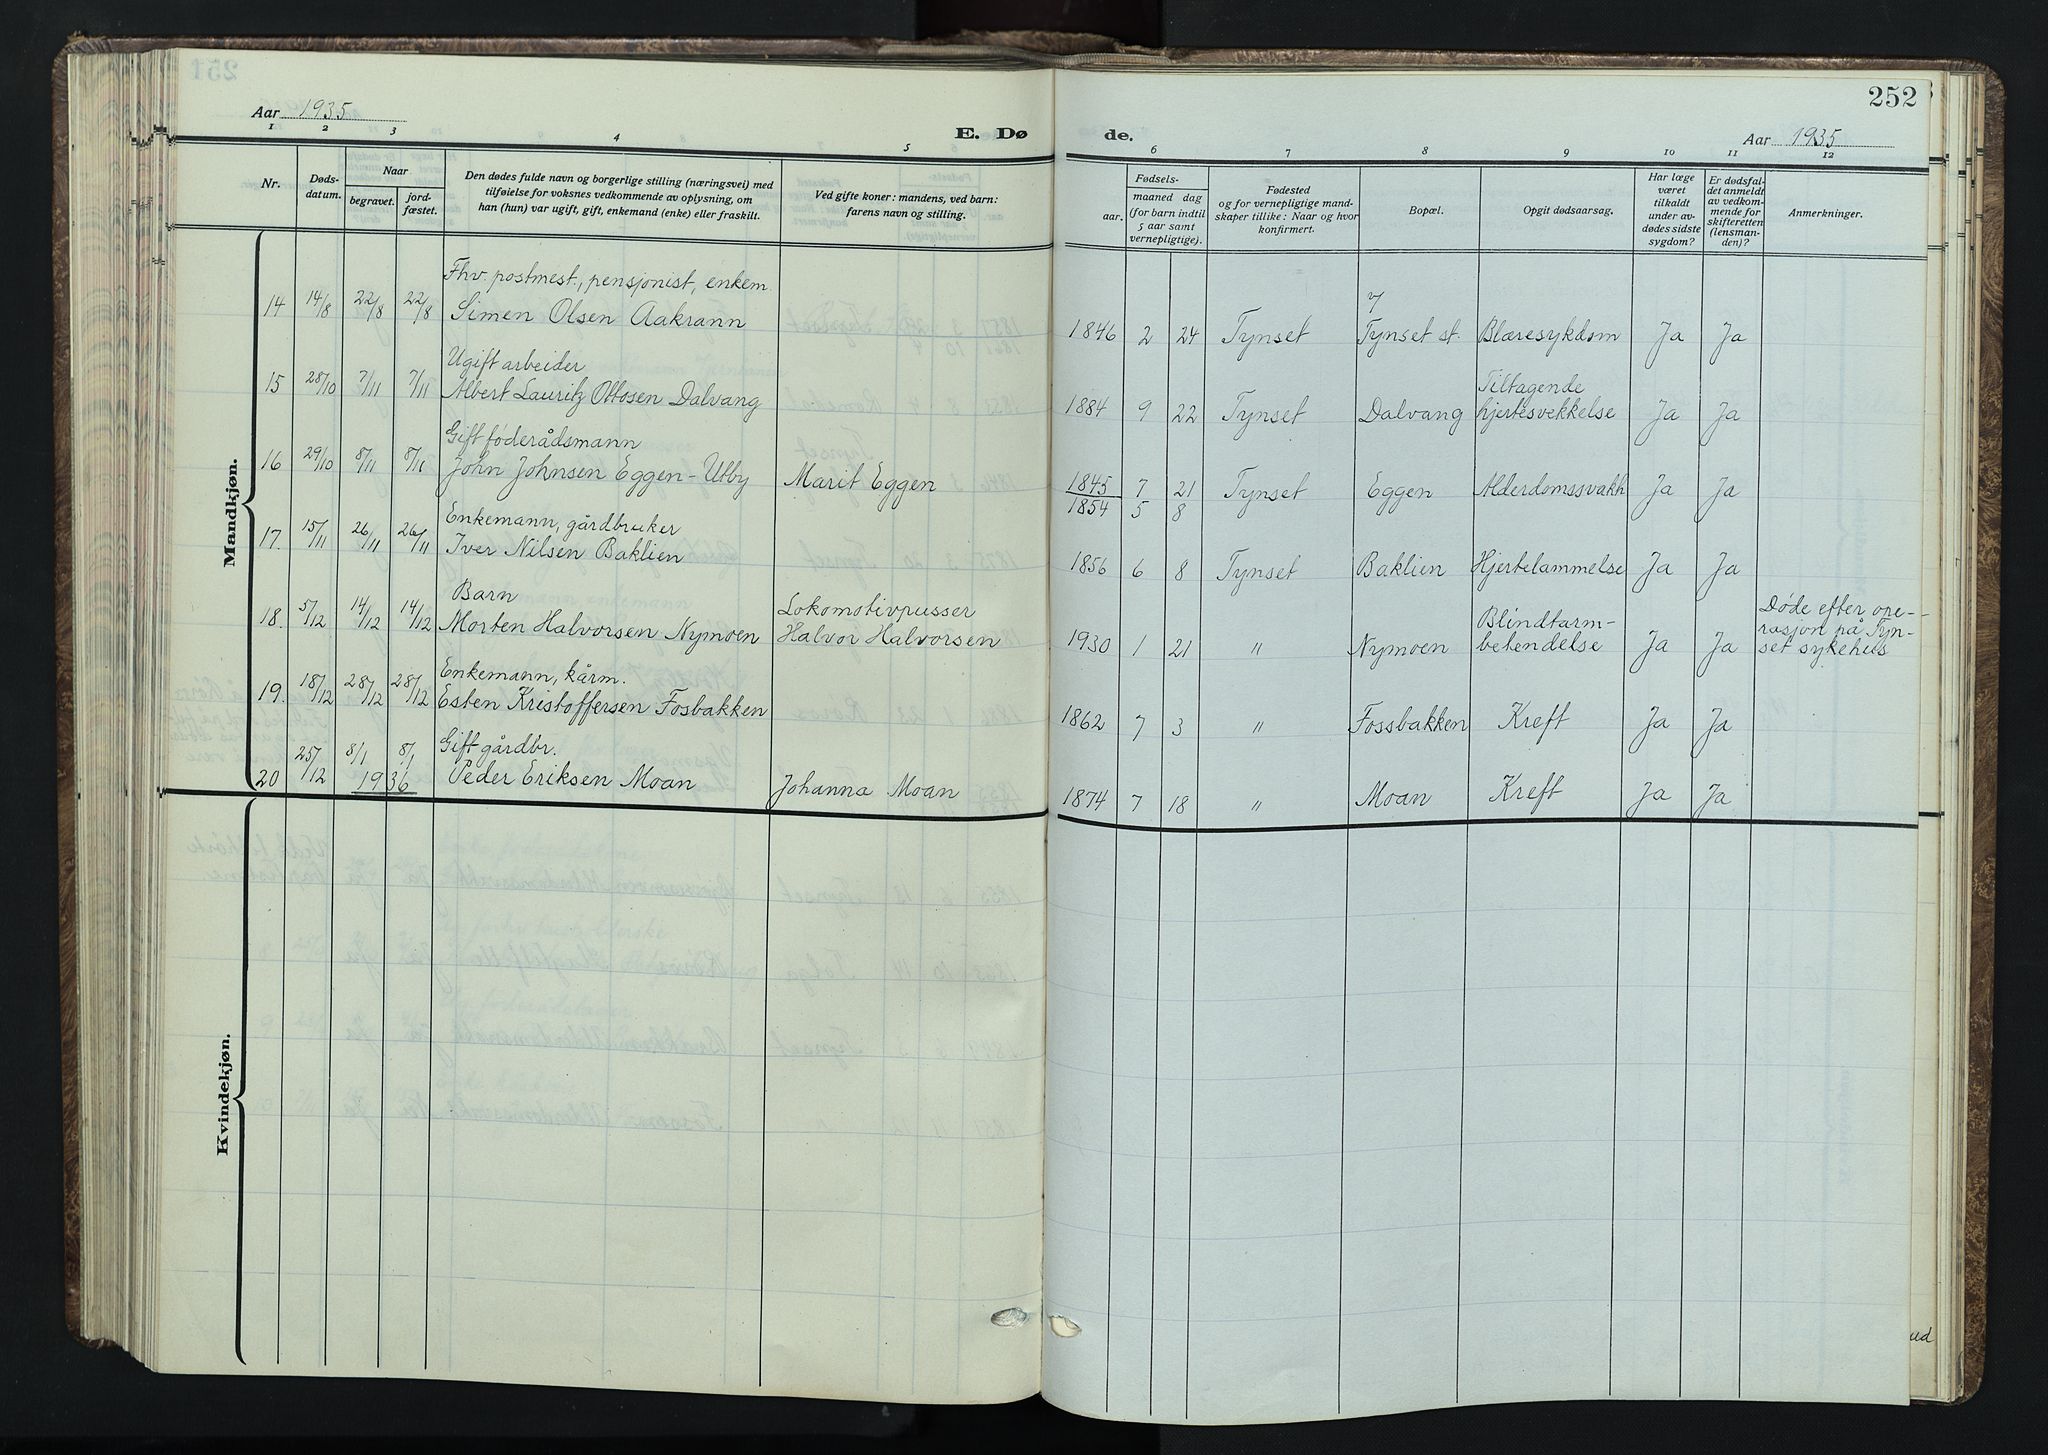 252
Aar 1935
E. Dø de.
Aar 1935
1 2 3 4 5 6 7 8 9 10 11 12
Nr.
Døds-
datum.
Naar
begravet.
jord-
fæstet.
Den dødes fulde navn og borgerlige stilling (næringsvei) med
tilføielse for voksnes vedkommende av oplysning, om
han (hun) var ugift, gift, enkemand (enke) eller fraskilt.
Ved gifte koner: mandens, ved barn:
farens navn og stilling.
Fødsels-
aar. maaned dag
(for barn indtil
5 aar samt
vernepligtige).
Fødested
og for vernepligtige mand-
skaper tillike: Naar og hvor
konfirmert.
Bopæl.
Opgit dødsaarsag.
Har læge
været
tilkaldt
under av-
dødes sidste
sygdom?
Er dødsfal-
det anmeldt
av vedkom-
mende for
skifteretten
(lensman-
den)?
Anmerkninger.
Mandkjøn.
Fhv. postmest., pensjonist, enkem.
14 14/8 22/8 22/8 Simen Olsen Aakrann 1846 2 24 Tynset v/ Tynset st. Blæresykdom Ja Ja
Ugift arbeider
15 28/10 7/11 7/11 Albert Lauritz Ottosen Dalvang 1884 9 22 Tynset Dalvang Tiltagende hjertesvekkelse Ja Ja
Gift føderådsmann
16 29/10 8/11 8/11 John Johnsen Eggen-Utby Marit Eggen 1845 7 21 Tynset Eggen Alderdomssvakh Ja Ja
1854 5 8
Enkemann, gårdbruker
17. 15/11 26/11 26/11 Iver Nilsen Baklien 1856 6 8 Tynset Baklien Hjertelammelse Ja Ja
Barn Lokomotivpusser Blindtarm- Døde efter ope-
18. 5/12 14/12 14/12 Morten Halvorsen Nymoen Halvor Halvorsen 1930 1 21 " Nymoen betendelse Ja Ja rasjon på Tyn-
set sykehus
Enkemann, kårm.
19. 18/12 28/12 28/12 Esten Kristoffersen Fosbakken 1862 7 3 " Fossbakken Kreft Ja Ja
Gift gårdbr.
20 25/12 8/1 8/1 1936 Peder Eriksen Moan Johanna Moan 1874 7 18 " Moan Kreft Ja Ja
Kvindekjøn.
ud